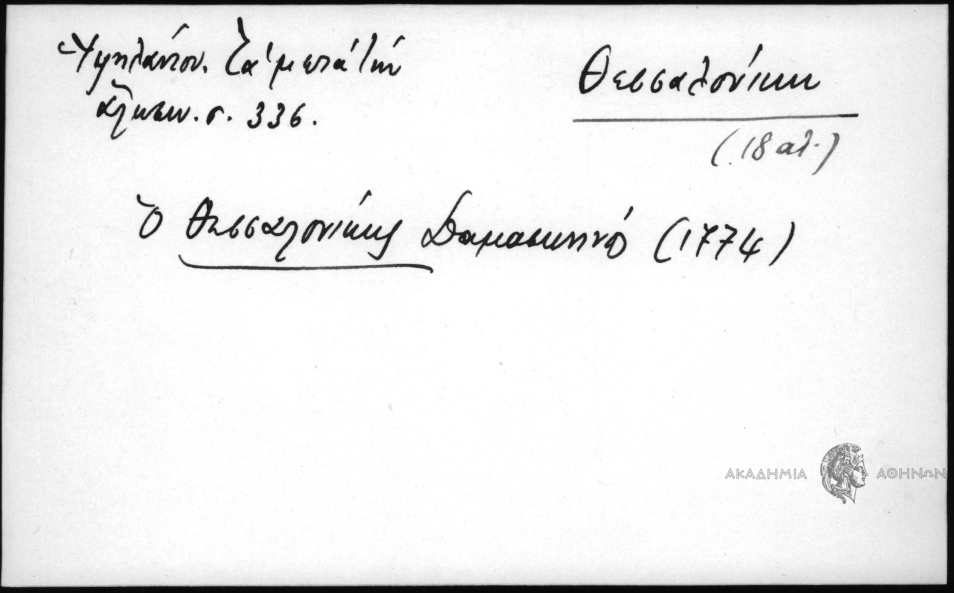 Ὑψηλάντου. Τὰ μετὰ τὴν
ἅλωσιν. σ. 336.
Θεσσαλονίκη
(18 αἰ.)
Ὁ Θεσσαλονίκης Δαμασκηνός (1774)
ΑΚΑΔΗΜΙΑ ΑΘΗΝΩΝ